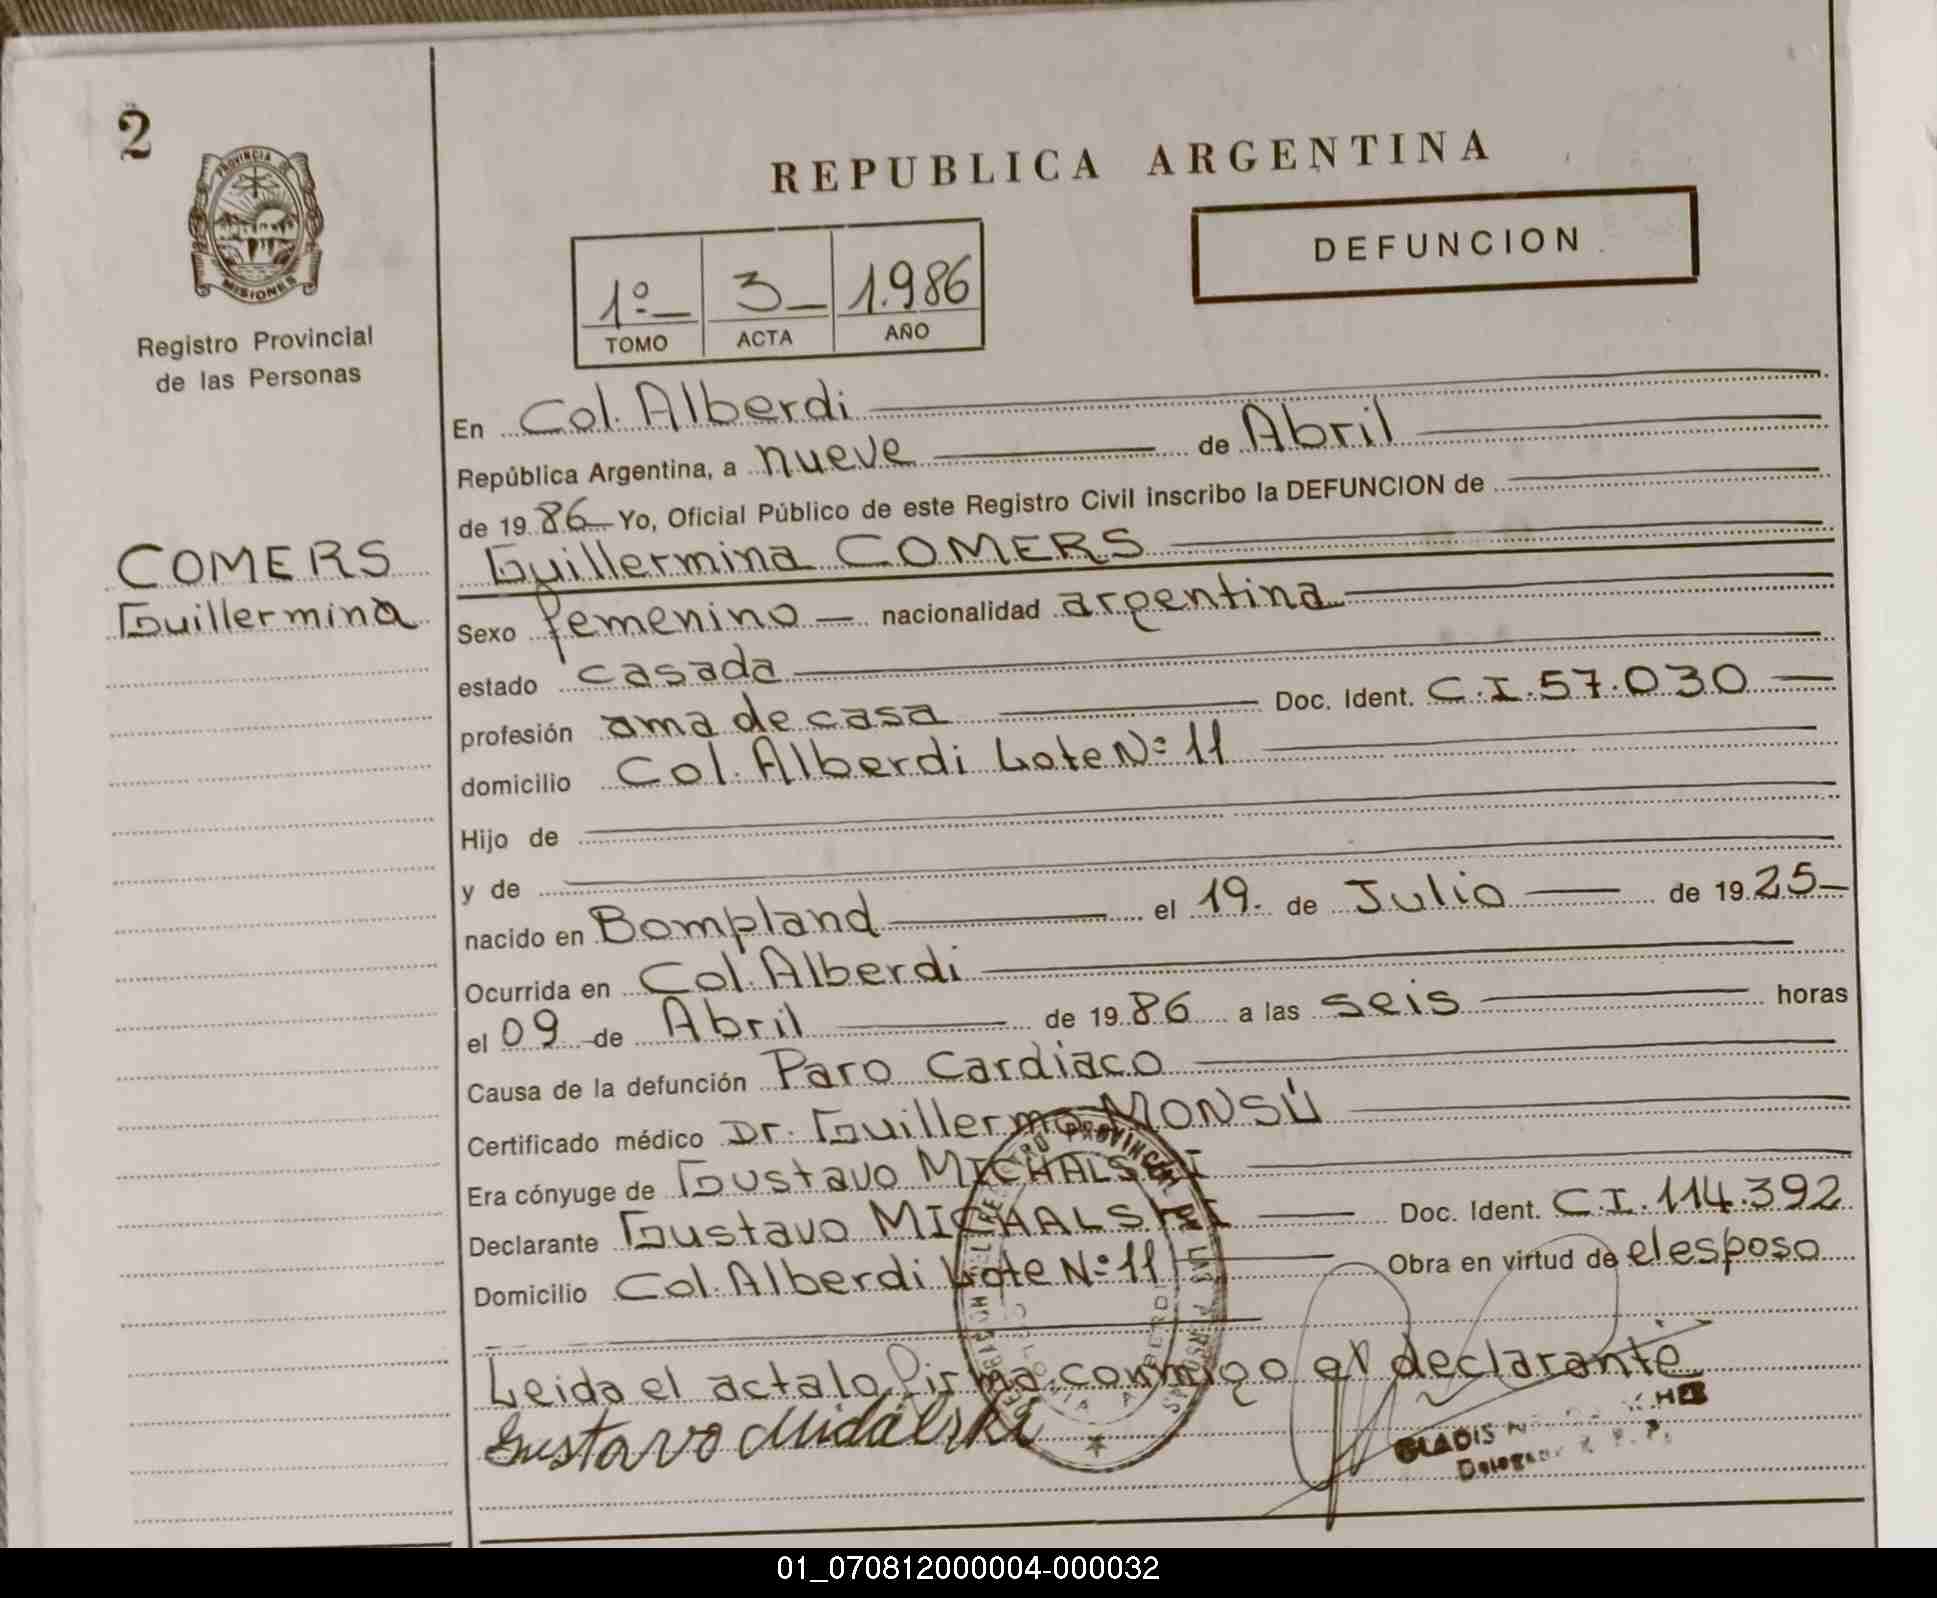 2
PROVINCIA DE
MISIONES
Registro Provincial
de las Personas
COMERS
Guillermina
REPUBLICA ARGENTINA
DEFUNCION
1º 3 1.986
TOMO ACTA AÑO
En Col. Alberdi
República Argentina, a nueve de Abril
de 19 86 Yo, Oficial Público de este Registro Civil inscribo la DEFUNCION de
Guillermina COMERS
Sexo femenino nacionalidad argentina
estado casada
profesión ama de casa Doc. Ident. C.I. 57.030
domicilio Col. Alberdi Lote Nº 11
Hijo de
y de
nacido en Bompland el 19. de Julio de 19 25
Ocurrida en Col. Alberdi
el 09 de Abril de 19 86 a las seis horas
Causa de la defunción Paro Cardiaco
Certificado médico Dr. Guillermo MONSÚ
Era cónyuge de Gustavo MICHALSKI
Declarante Gustavo MICHALSKI Doc. Ident. C.I. 114.392
Domicilio Col. Alberdi Lote Nº 11 Obra en virtud de el esposo
Leida el acta lo firma conmigo el declarante
Gustavo Michalski
REGISTRO PROVINCIAL DE LAS PERSONAS
COLONIA ALBERDI
GLADIS
01_070812000004-000032